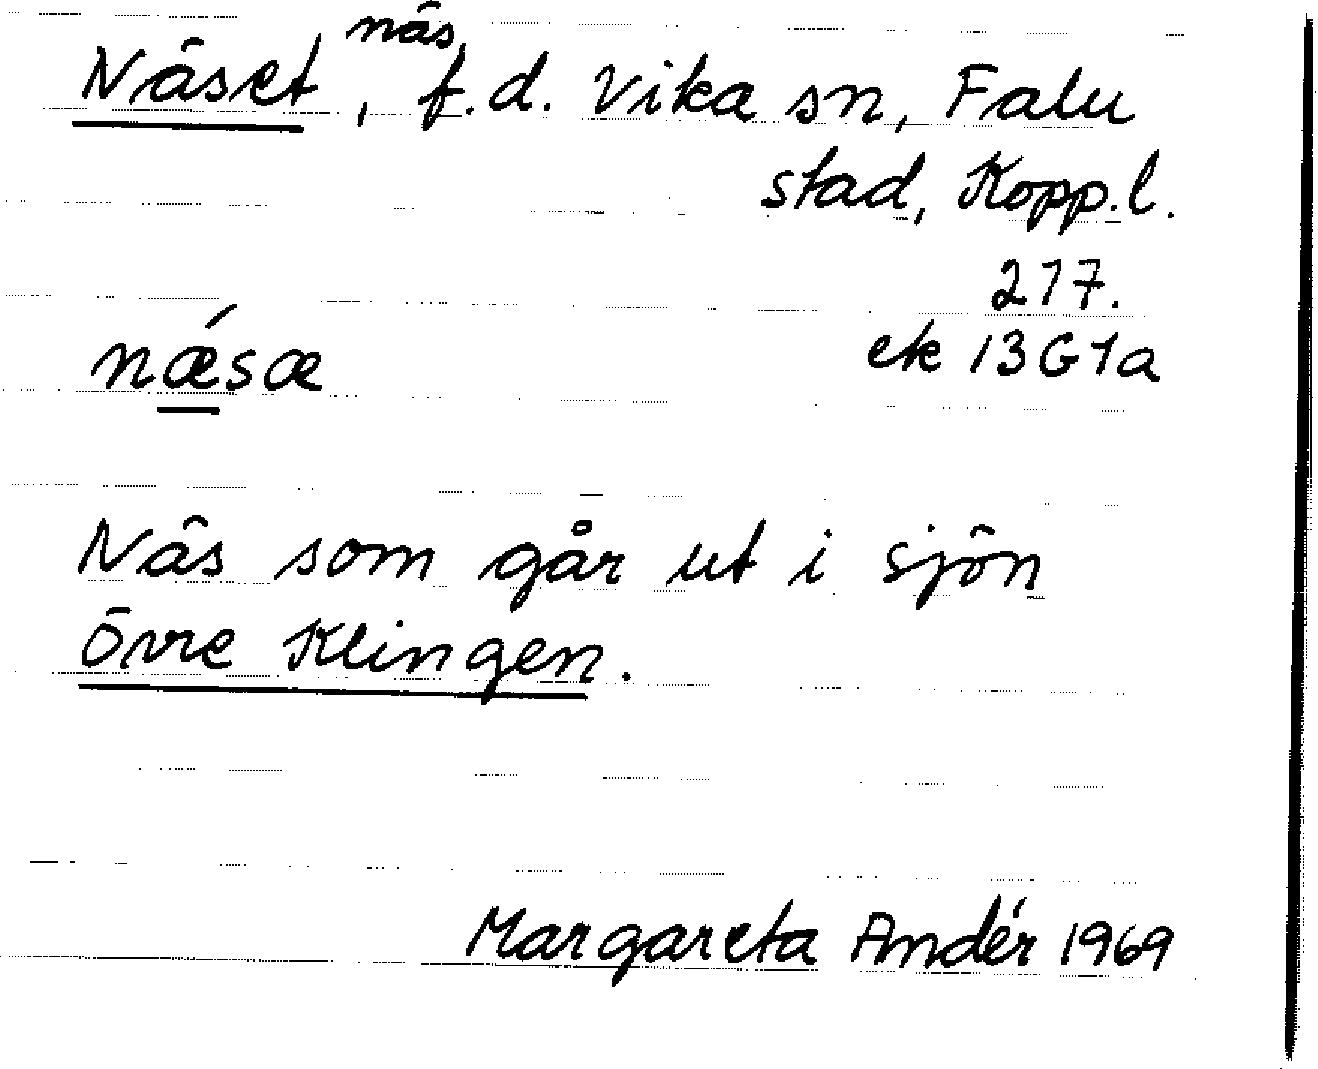 Näset, näs, f.d. Vika sn, Falu
stad, Kopp.l.
217.
nǽsæ ek 13G1a
Näs som går ut i sjön
Övre Klingen.
Margareta Andér 1969